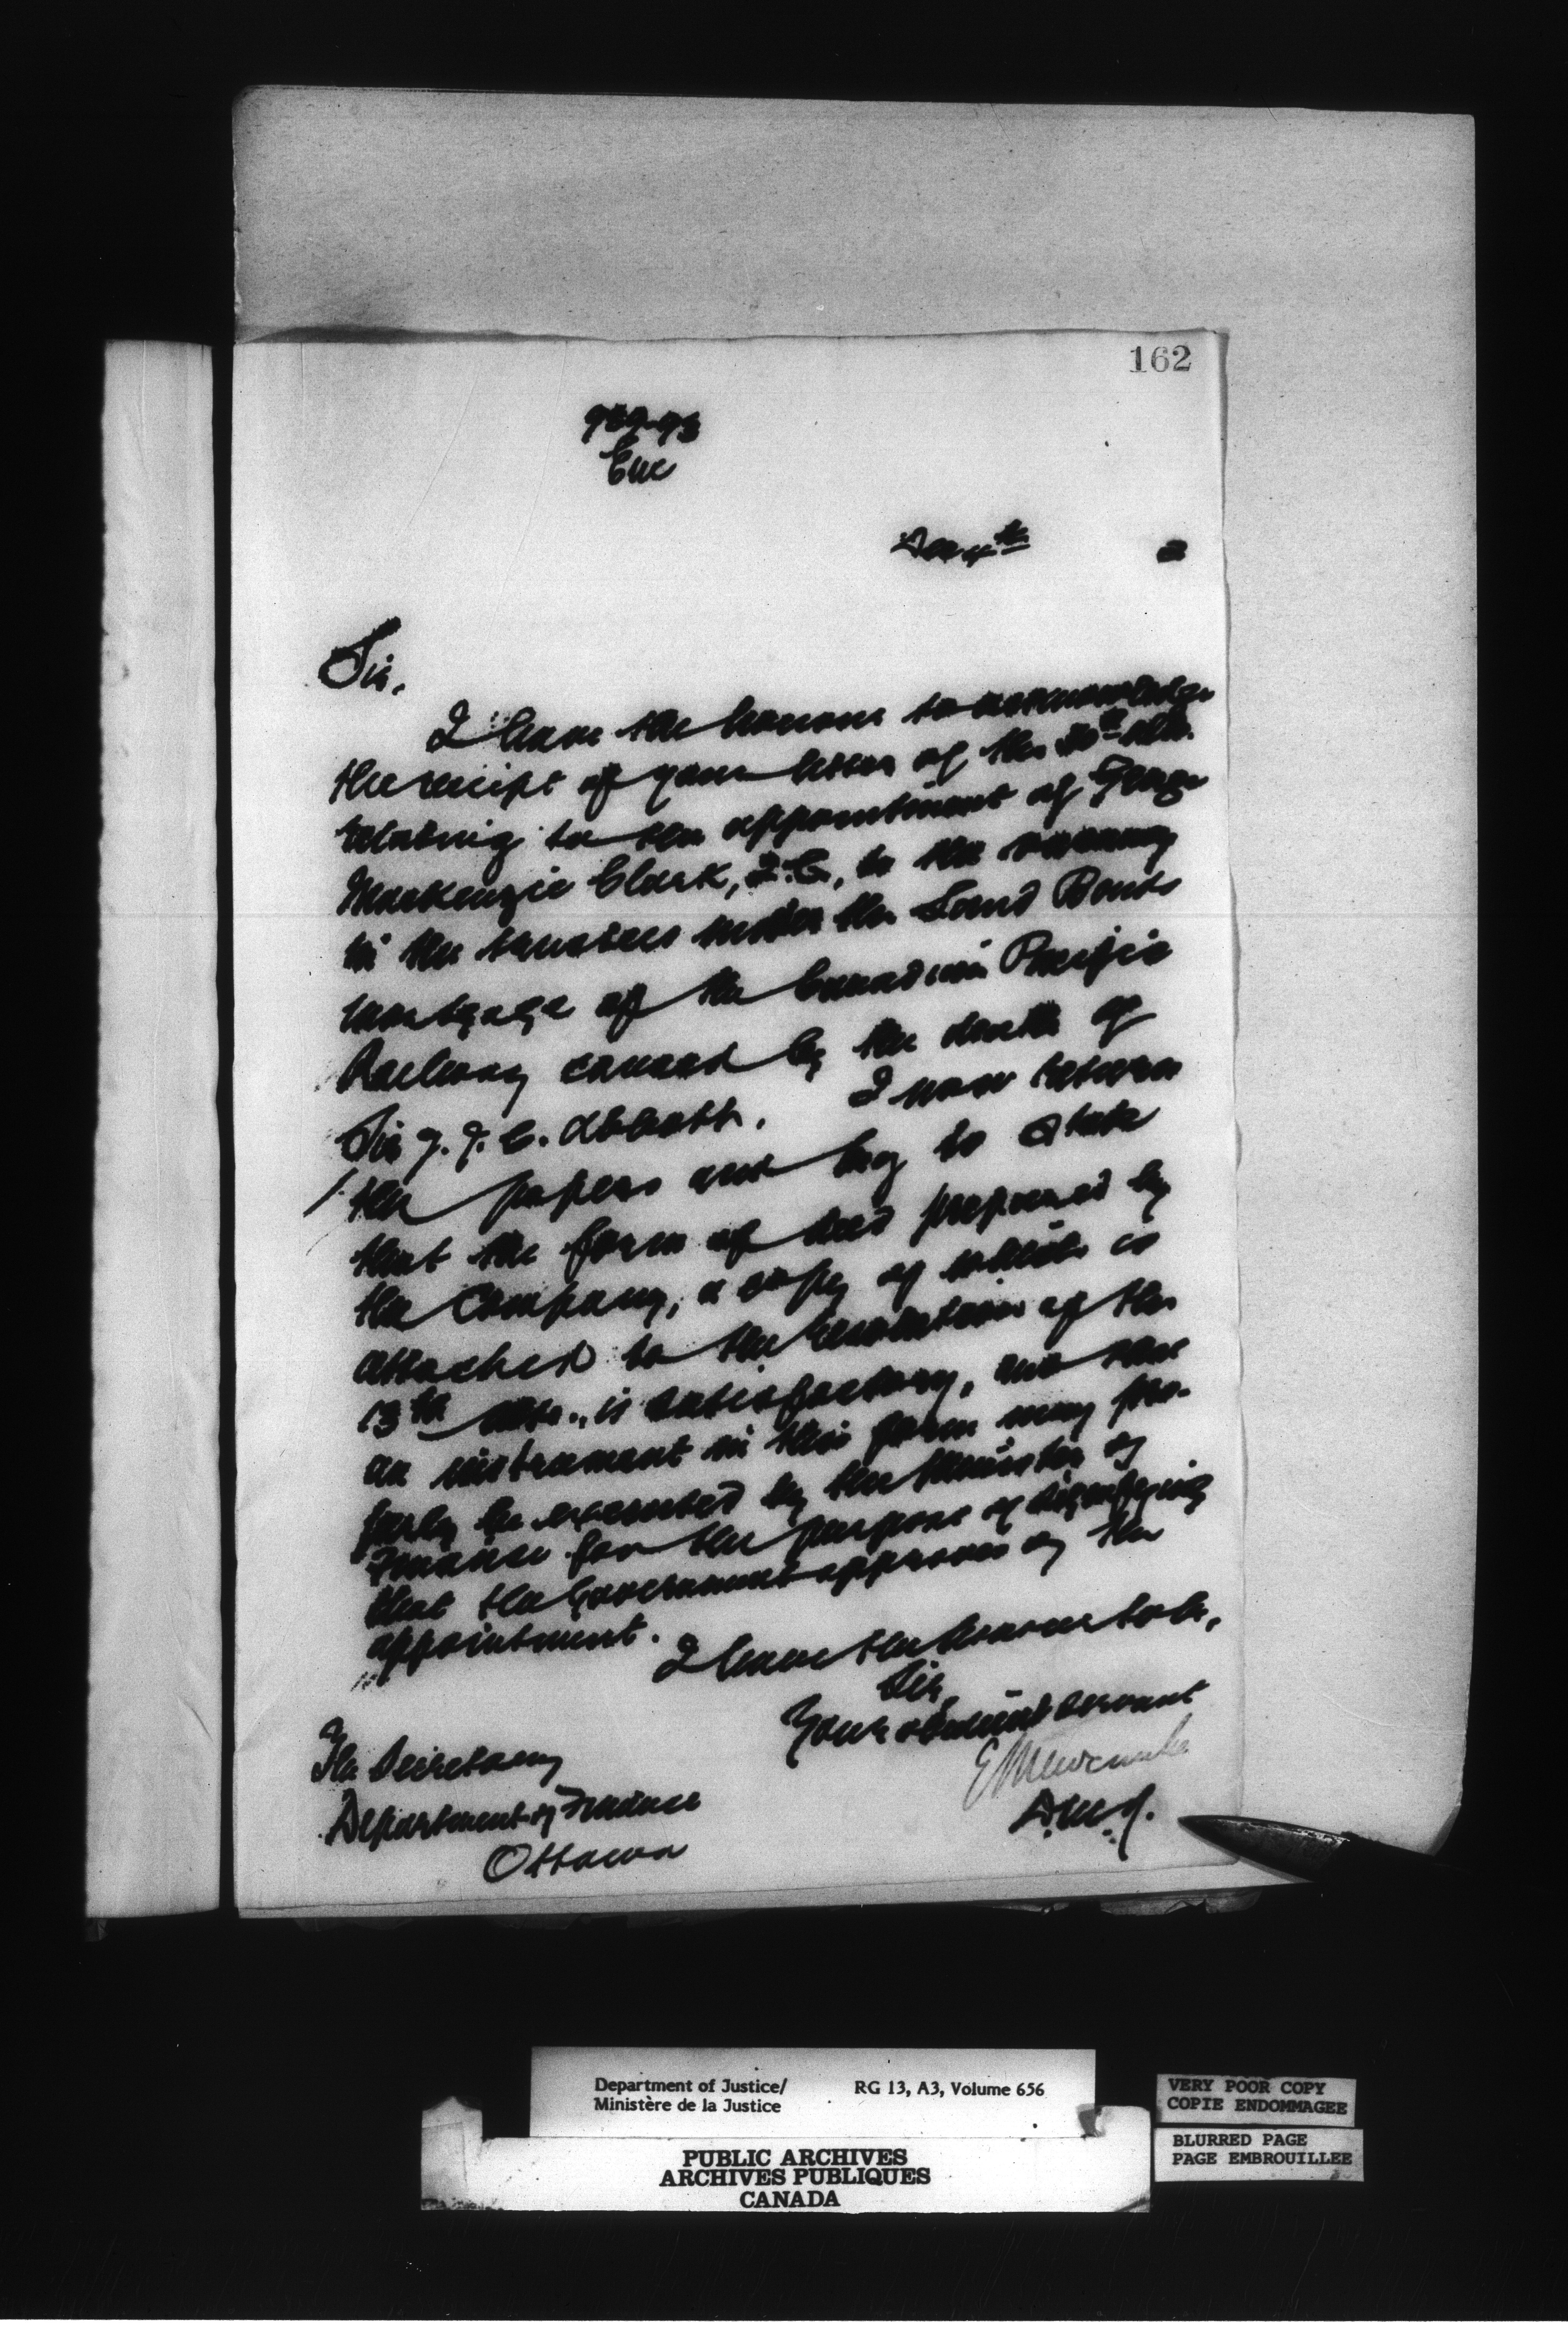 162
989-93
Enc
Dec 4th 3
Sir,
I have the honour to acknowledge
the receipt of your letter of the 30th ulto.
relating to the appointment of George
Mackenzie Clark, Q.C., to the vacancy
in the trustees under the Land Bonds
mortgage of the Canadian Pacific
Railway caused by the death of
Sir J. J. C. Abbott. I now return
the papers and beg to state
that the form of deed prepared by
the Company, a copy of which is
attached to the resolution of the
13th ulto., is satisfactory, and that
an instrument in this form may pro-
perly be executed by the Minister of
Finance for the purpose of signifying
that the Government approves of the
appointment.
I have the honour to be,
Sir,
Your obedient servant
E Newcombe
D.M.J.
The Secretary
Department of Finance
Ottawa
Department of Justice/
Ministère de la Justice
RG 13, A3, Volume 656
PUBLIC ARCHIVES
ARCHIVES PUBLIQUES
CANADA
VERY POOR COPY
COPIE ENDOMMAGEE
BLURRED PAGE
PAGE EMBROUILLEE